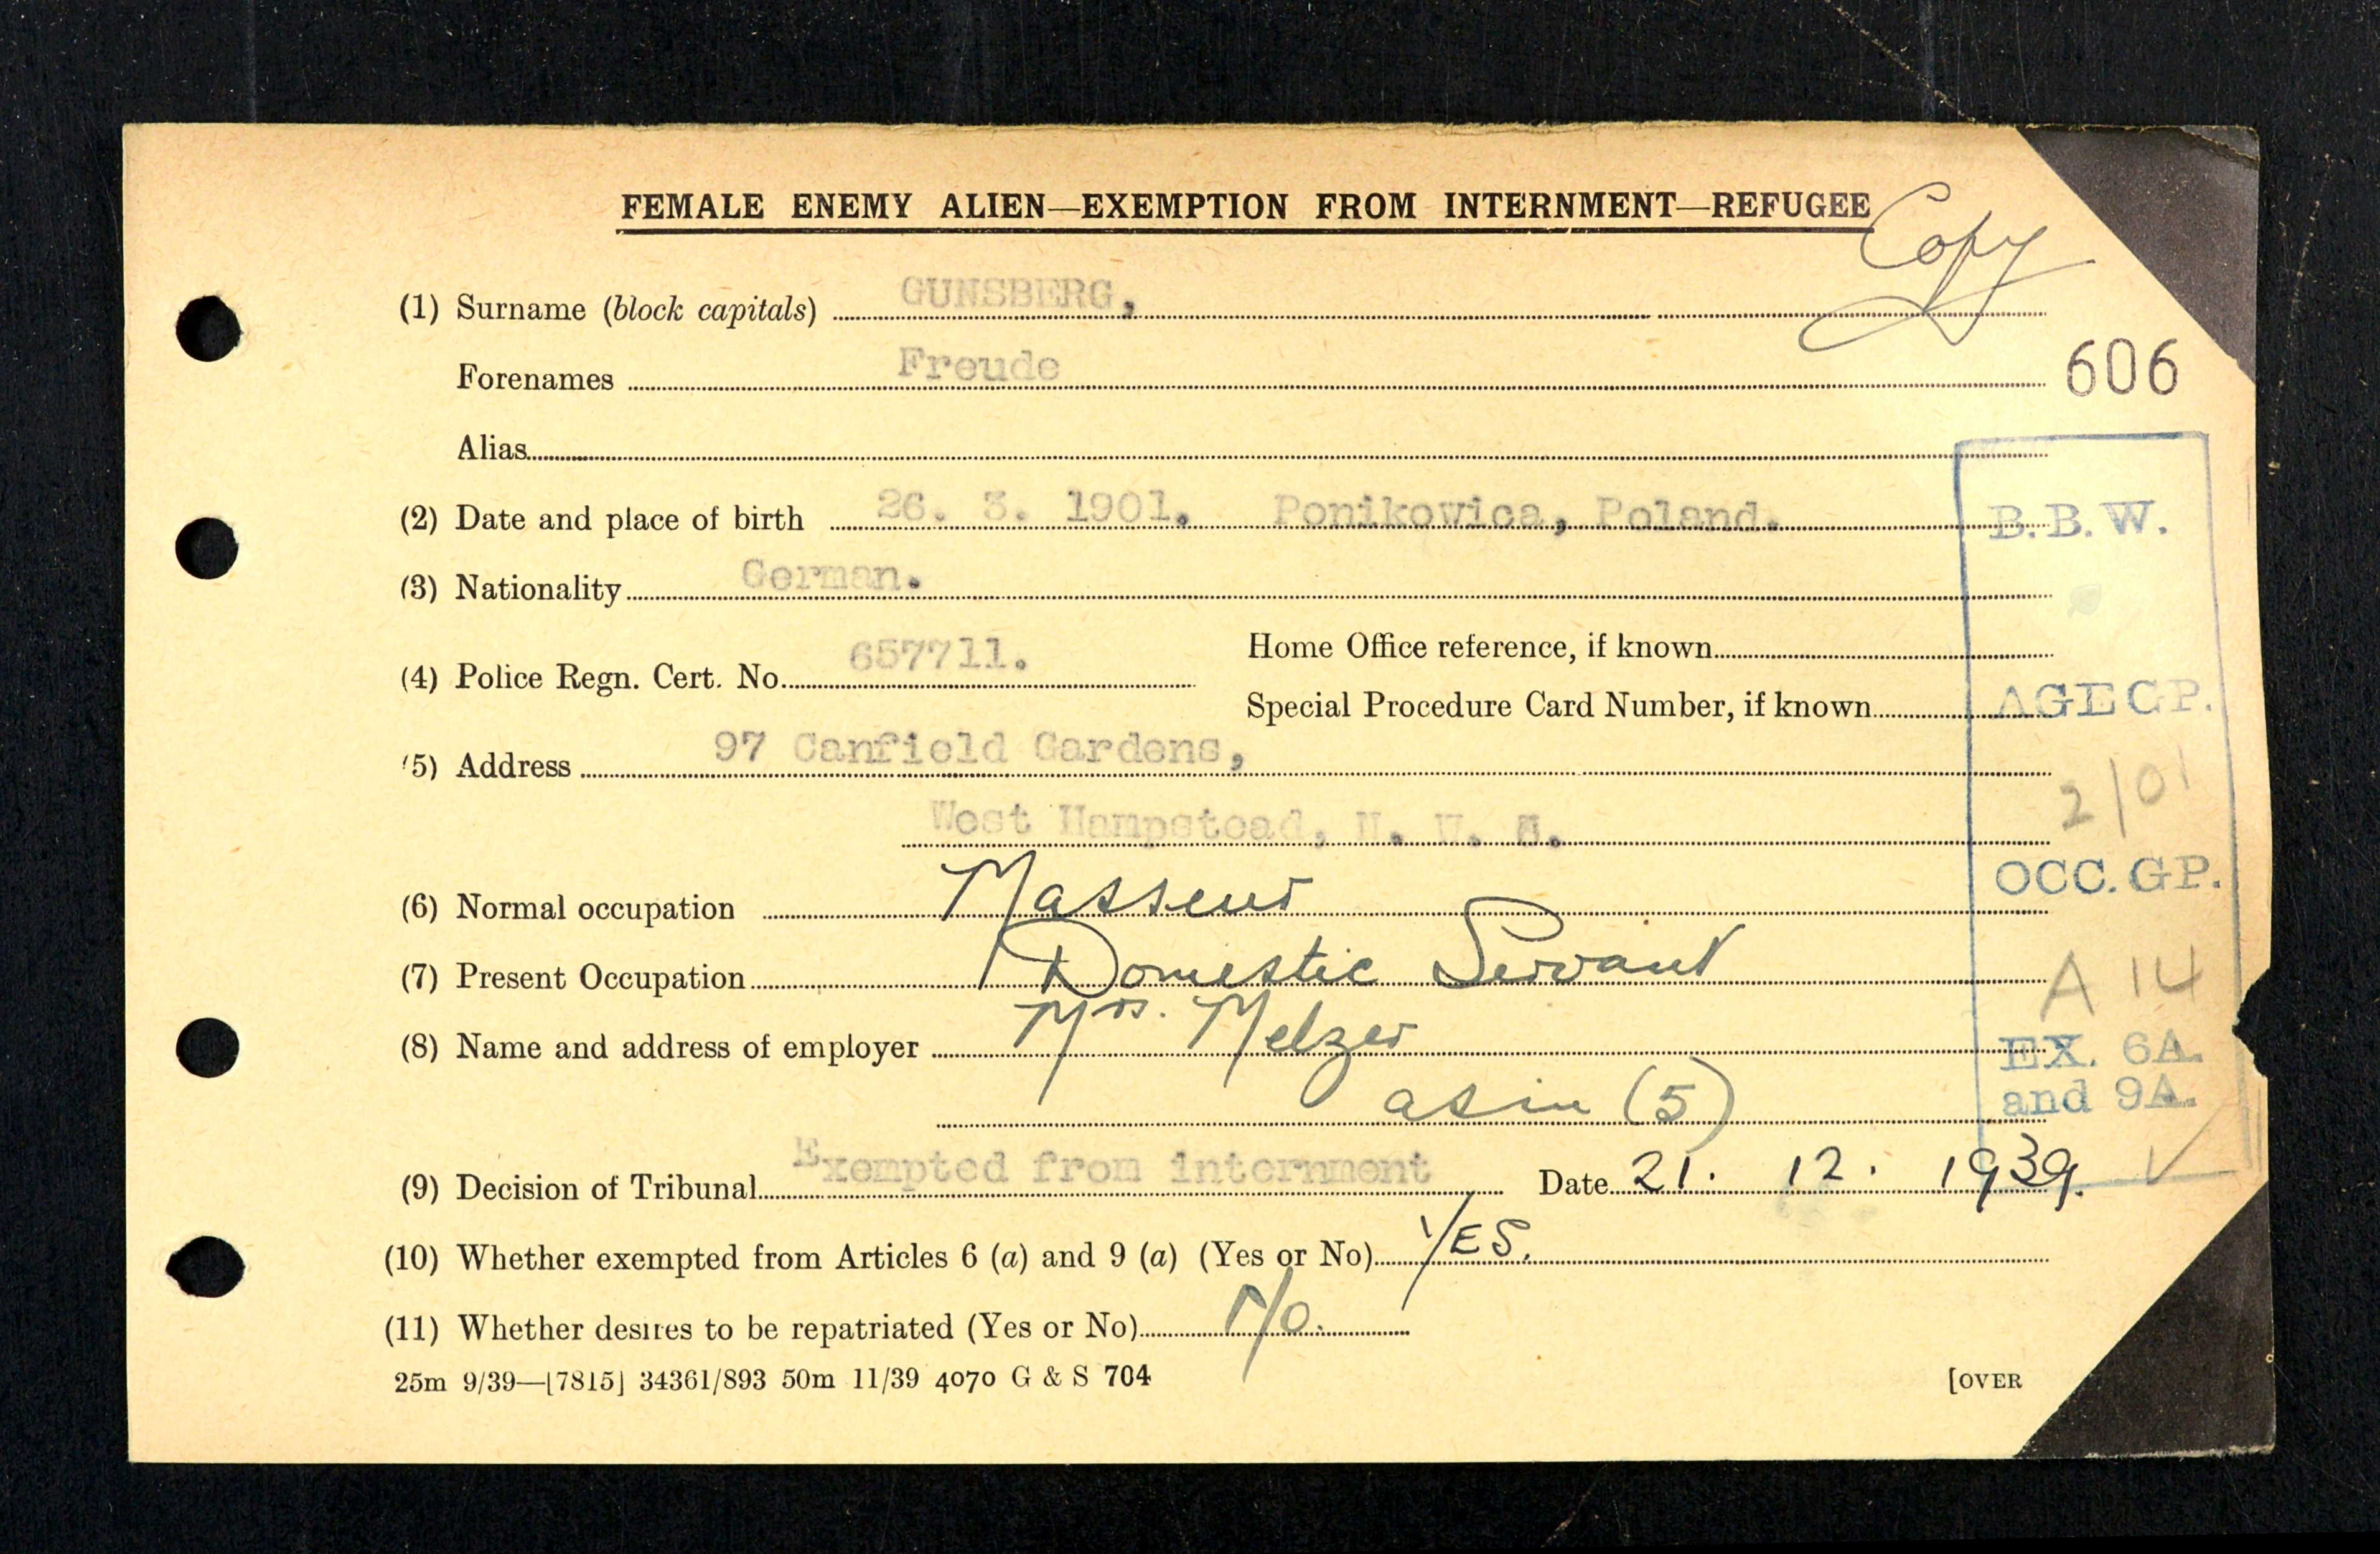 FEMALE ENEMY ALIEN—EXEMPTION FROM INTERNMENT—REFUGEE
Copy
(1) Surname (block capitals) GUNSBERG,
606
Forenames Freude
Alias
(2) Date and place of birth 26. 3. 1901. Ponikowica, Poland.
B.B.W.
(3) Nationality German.
Home Office reference, if known
(4) Police Regn. Cert. No. 657711.
Special Procedure Card Number, if known
AGE GP.
(5) Address 97 Canfield Gardens,
2/01
West Hampstead, N. W. 6.
OCC. GP.
(6) Normal occupation Masseur
(7) Present Occupation Domestic Servant
A 14
(8) Name and address of employer Mrs. Melzer
EX. 6A.
and 9A.
as in (5)
(9) Decision of Tribunal Exempted from internment Date 21. 12. 1939.
(10) Whether exempted from Articles 6 (a) and 9 (a) (Yes or No) YES.
(11) Whether desires to be repatriated (Yes or No) No.
25m 9/39—[7815] 34361/893 50m 11/39 4070 G & S 704
[OVER